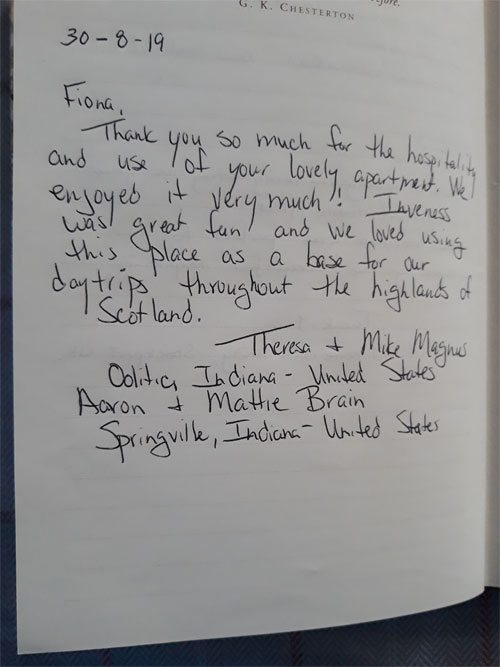 before.
G. K. CHESTERTON
30-8-19
Fiona,
Thank you so much for the hospitality
and use of your lovely apartment. We
enjoyed it very much! Inveness
was great fun and we loved using
this place as a base for our
daytrips throughout the highlands of
Scotland.
Theresa + Mike Magnus
Oolitic, Indiana - United States
Aaron + Mattie Brain
Springville, Indiana - United States